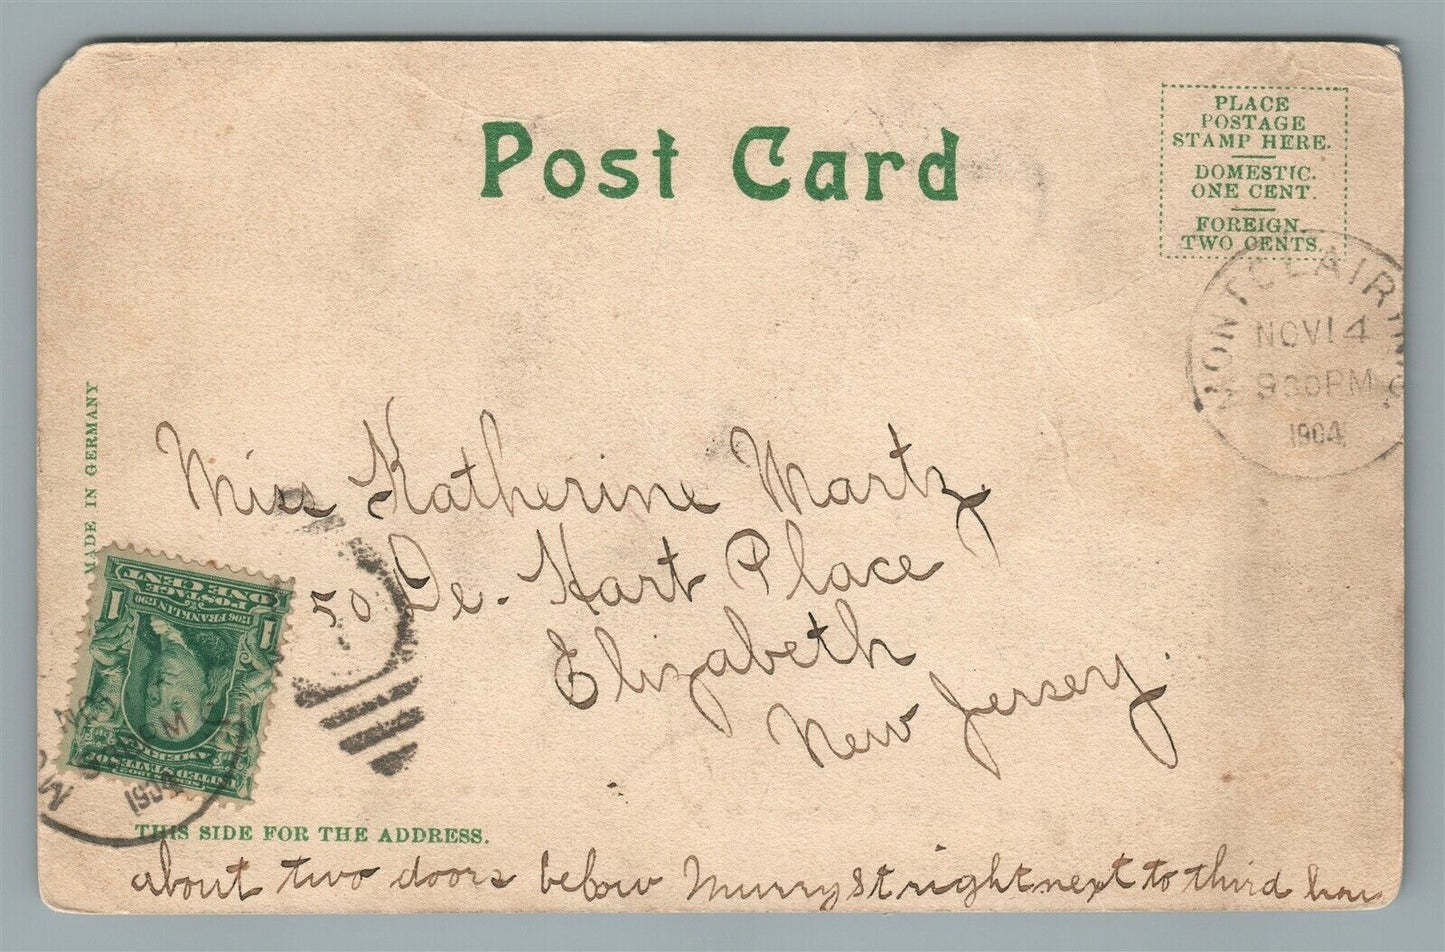 Post Card
PLACE
POSTAGE
STAMP HERE.
DOMESTIC.
ONE CENT.
FOREIGN.
TWO CENTS.
MONTCLAIR, N.
NOV 14
1904
MADE IN GERMANY
Miss Katherine Martz,
50 De. Hart Place
Elizabeth
New Jersey.
ONE CENT
POSTAGE
1706 FRANKLIN 1790
1 1
UNITED STATES OF
AMERICA
1904
THIS SIDE FOR THE ADDRESS.
about two doors below Murry St right next to third hou